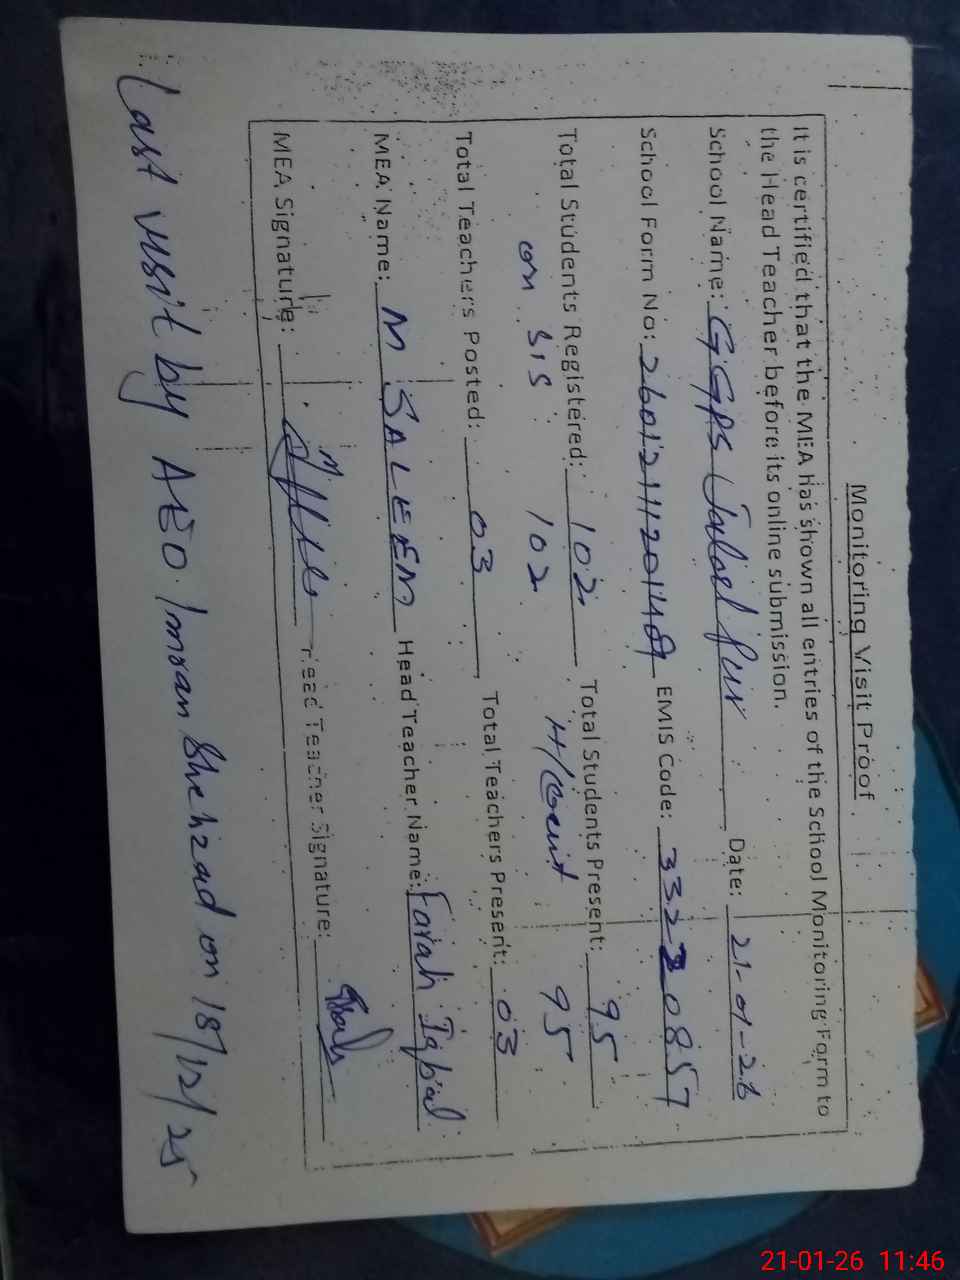 Monitoring Visit Proof
It is certified that the MEA has shown all entries of the School Monitoring Form to
the Head Teacher before its online submission.
School Name: G.GPS Date: 21-01-26
School Form No: EMIS Code: 33230857
Total Students Registered: 102 Total Students Present: 95
on SIS 102 H/Count 95
Total Teachers Posted: 03 Total Teachers Present: 03
MEA Name: M SALEEM Head Teacher Name: Farah Iqbal
MEA Signature: Head Teacher Signature:
Last visit by AEO Imran Shehzad on 18/12/25
21-01-26 11:46